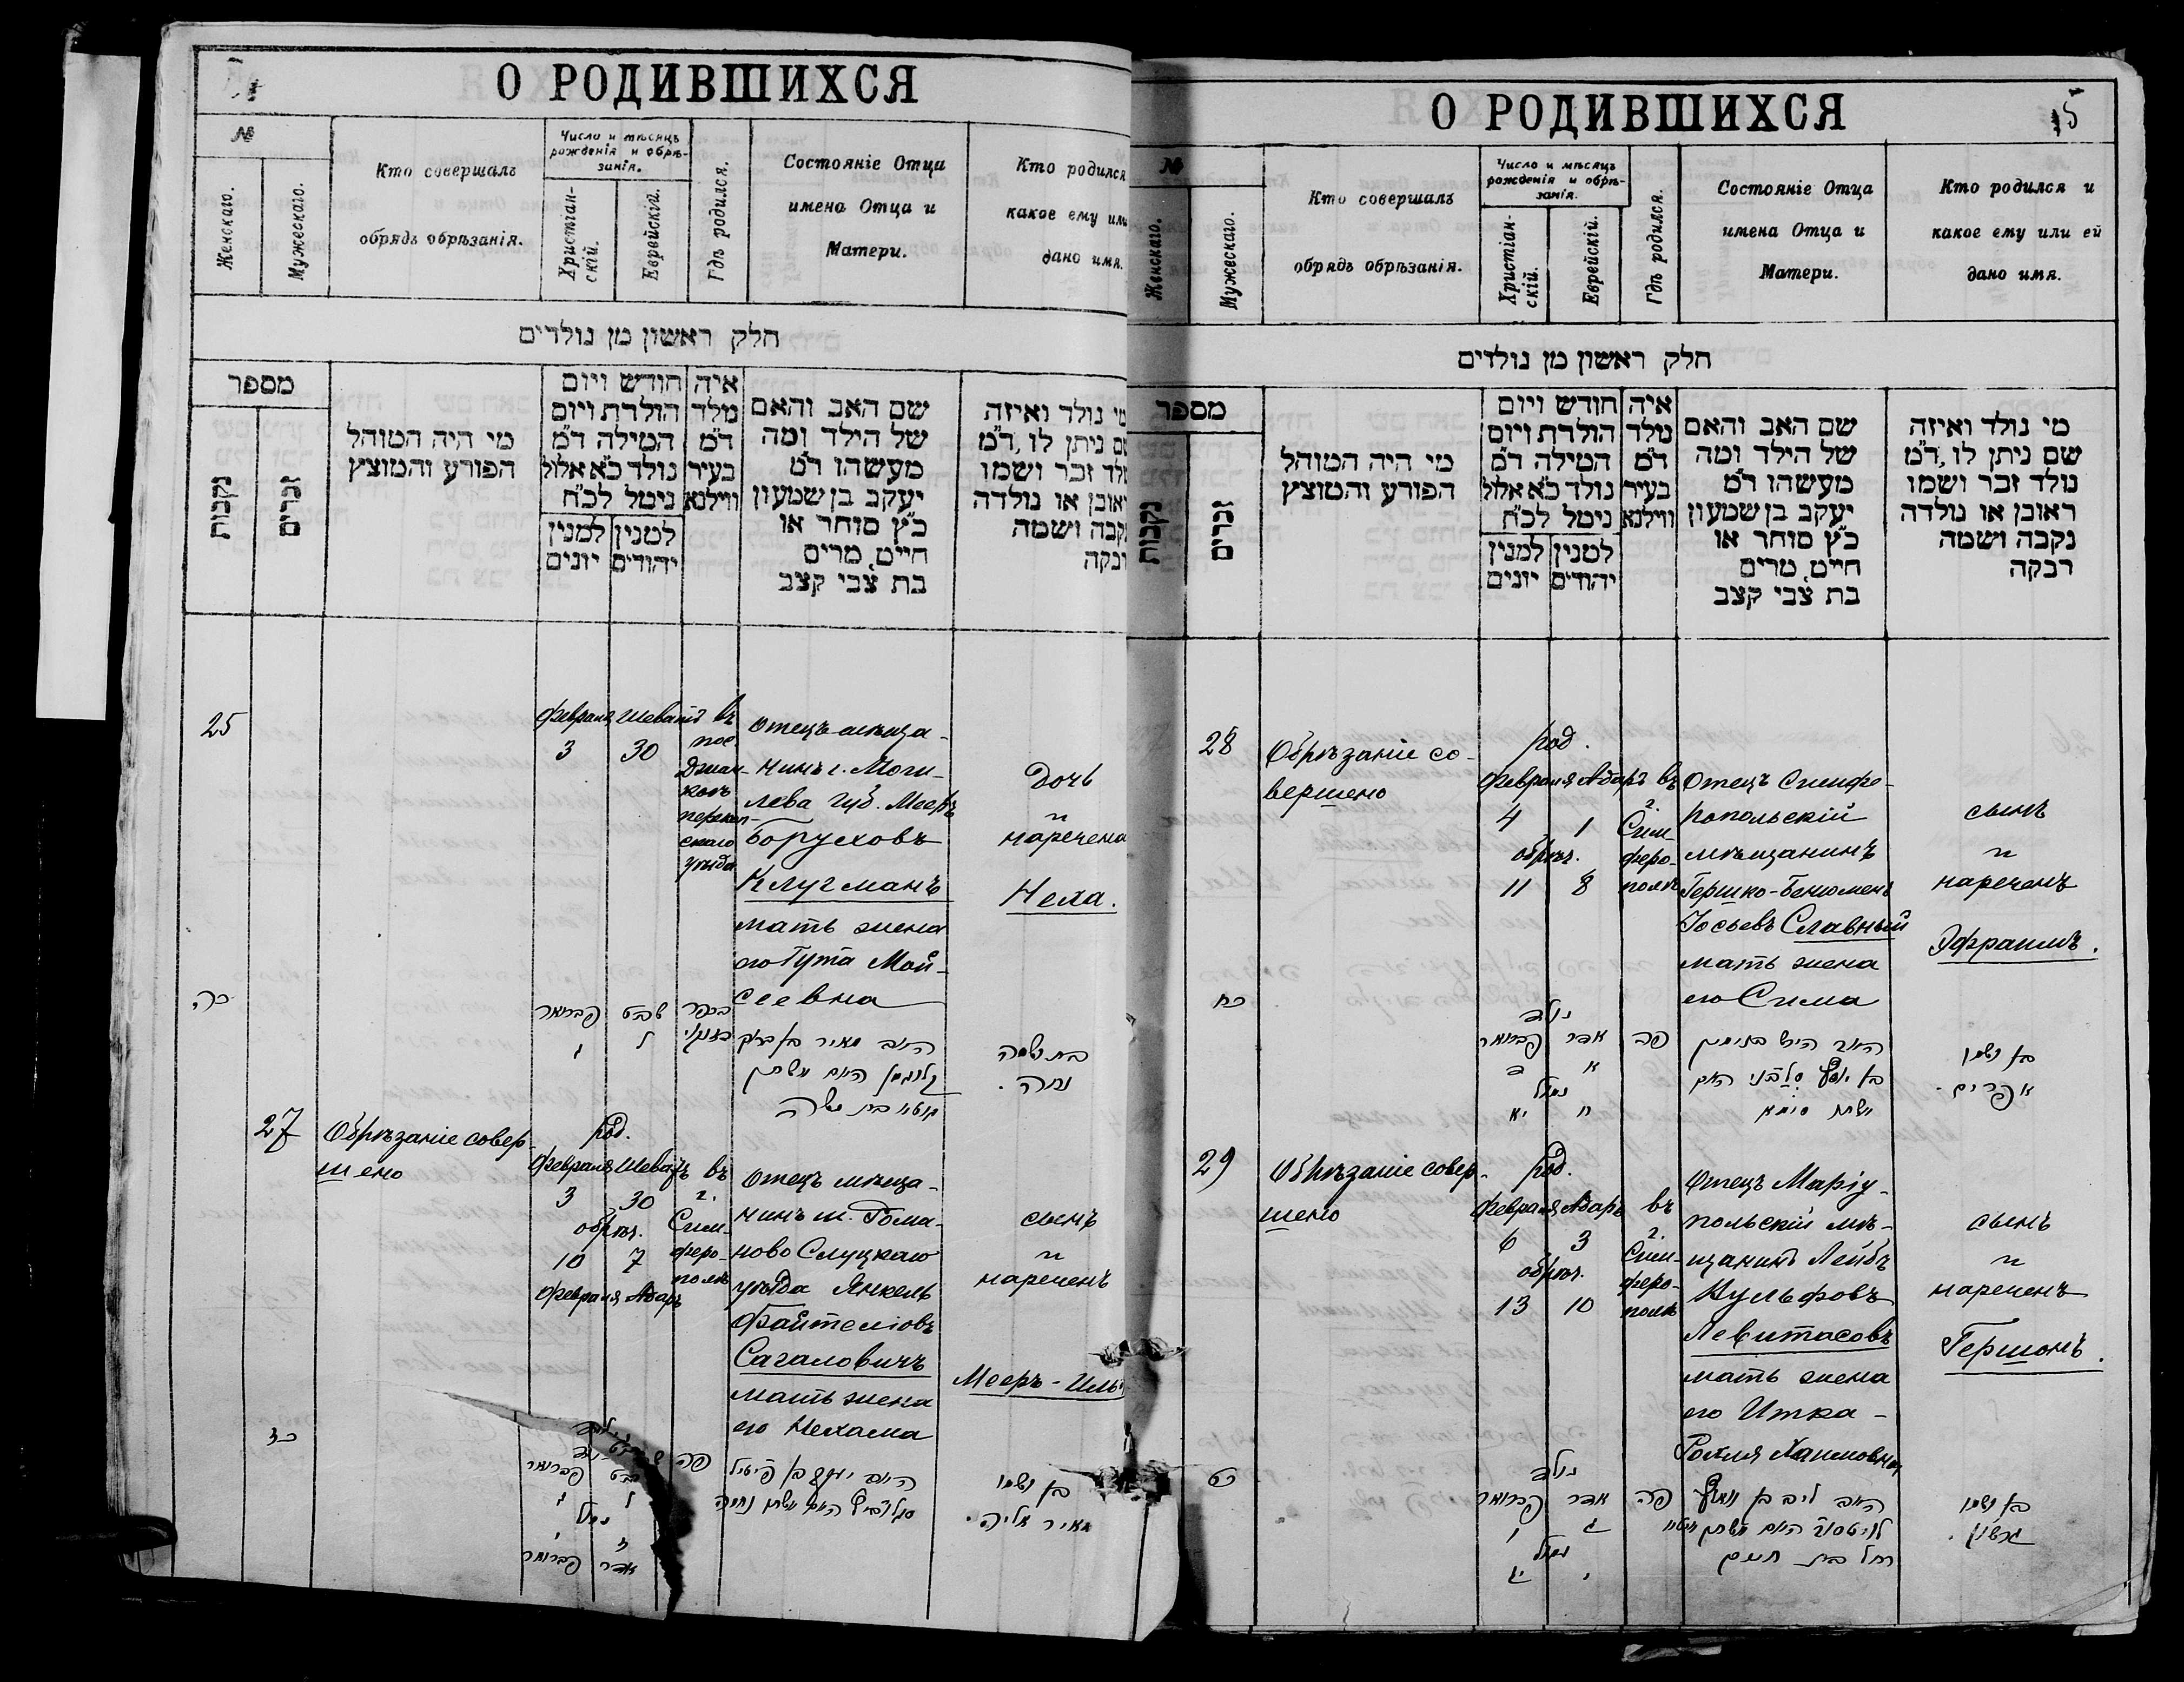 О РОДИВШИХСЯ
№
Женскаго.
Мужескаго.
Кто совершалъ
обрядъ обрѣзанія.
Число и мѣсяцъ
рожденія и обрѣ-
занія.
Христіан-
скій.
Еврейскій.
Гдѣ родился.
Состояніе Отца
имена Отца и
Матери.
Кто родился
какое ему или
дано имя.
חלק ראשון מן נולדים
מספר
נקבות
זכרים
מי היה המוהל
הפורע והמוצץ
חודש ויום
הולדת ויום
המילה ד״מ
נולד כ״א אלול
נימל לכ״ח
למנין
יונים
למנין
יהודים
איה
נולד
ד״מ
בעיר
ווילנא
שם האב והאם
של הילד ומה
מעשהו ד״מ
יעקב בן שמעון
כ״ץ סוחר או
חייט, מרים
בת צבי קצב
מי נולד ואיזה
שם ניתן לו, ד״מ
נולד זכר ושמו
ראובן או נולדה
נקבה ושמה
25
Февраля Шеватъ
3 30
въ
пос.
Джан-
кой
перекоп-
скаго
уѣзда
Отецъ мѣща-
нинъ г. Моги-
лева губ. Мееръ
Боруховъ
Клугманъ
мать жена
его Гута Мой-
сеевна
Дочь
и
наречена
Неха.
כה
פברואר שבט
ג ל
האב מאיר בן ברוך
קלוגמן האם אשתו
בת משה
בת ושמה
נחה.
27
Обрѣзаніе совер-
шено
род.
Февраля Шеватъ
3 30
обрѣз.
10 7
Февраля Адаръ
въ
г.
Сим-
феро-
полѣ
Отецъ мѣща-
нинъ м. Рома-
ново Слуцкаго
уѣзда Янкель
Файтеліовъ
Сагаловичъ
мать жена
его Нехама
сынъ
и
нареченъ
Мееръ-Илья
כז
פברואר
ג ל
נמול
פברואר אדר
פה
האב יעקב בן פייטל
סגלוביץ האם אשתו נחמה
בן ושמו
מאיר אליה.
О РОДИВШИХСЯ
15
№
Женскаго.
Мужескаго.
Кто совершалъ
обрядъ обрѣзанія.
Число и мѣсяцъ
рожденія и обрѣ-
занія.
Христіан-
скій.
Еврейскій.
Гдѣ родился.
Состояніе Отца
имена Отца и
Матери.
Кто родился и
какое ему или ей
дано имя.
חלק ראשון מן נולדים
מספר
נקבות
זכרים
מי היה המוהל
הפורע והמוצץ
חודש ויום
הולדת ויום
המילה ד״מ
נולד כ״א אלול
נימל לכ״ח
למנין
יונים
למנין
יהודים
איה
נולד
ד״מ
בעיר
ווילנא
שם האב והאם
של הילד ומה
מעשהו ד״מ
יעקב בן שמעון
כ״ץ סוחר או
חייט, מרים
בת צבי קצב
מי נולד ואיזה
שם ניתן לו, ד״מ
נולד זכר ושמו
ראובן או נולדה
נקבה ושמה
רבקה
28
Обрѣзаніе со-
вершено
род.
Февраля Адаръ
4 1
обрѣз.
11 8
въ
г.
Сим-
феро-
полѣ
Отецъ Симфе-
ропольскій
мѣщанинъ
Гершко-Беноменъ
Іосьевъ Славный
мать жена
его Сима
сынъ
и
нареченъ
Эфраимъ.
כח
נולד
פברואר אדר
ד א
נמול
יא ח
פה
האב הירש בנימין
בן יוסף סלבני האם
אשתו סימא
בן ושמו
אפרים.
29
Обрѣзаніе совер-
шено
род.
Февраля Адаръ
6 3
обрѣз.
13 10
въ
г.
Сим-
феро-
полѣ
Отецъ Маріу-
польскій мѣ-
щанинъ Лейбъ
Вульфовъ
Левитасовъ
мать жена
его Итка-
Рохля Хаимовна
сынъ
и
нареченъ
Гершонъ.
כט
נולד
פברואר אדר
ו ג
נמול
יג י
פה
האב ליב בן וואלף
לויטסוב האם אשתו איטא
רחל בת חיים
בן ושמו
גרשון.